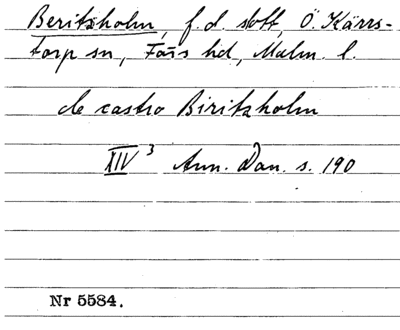 Beritzholm, f.d. slott, Ö. Kärrs-
torp sn, Färs hd, Malm. l.
de castro Biritzholm
XIV³ Ann. Dan. s. 190
Nr 5584.